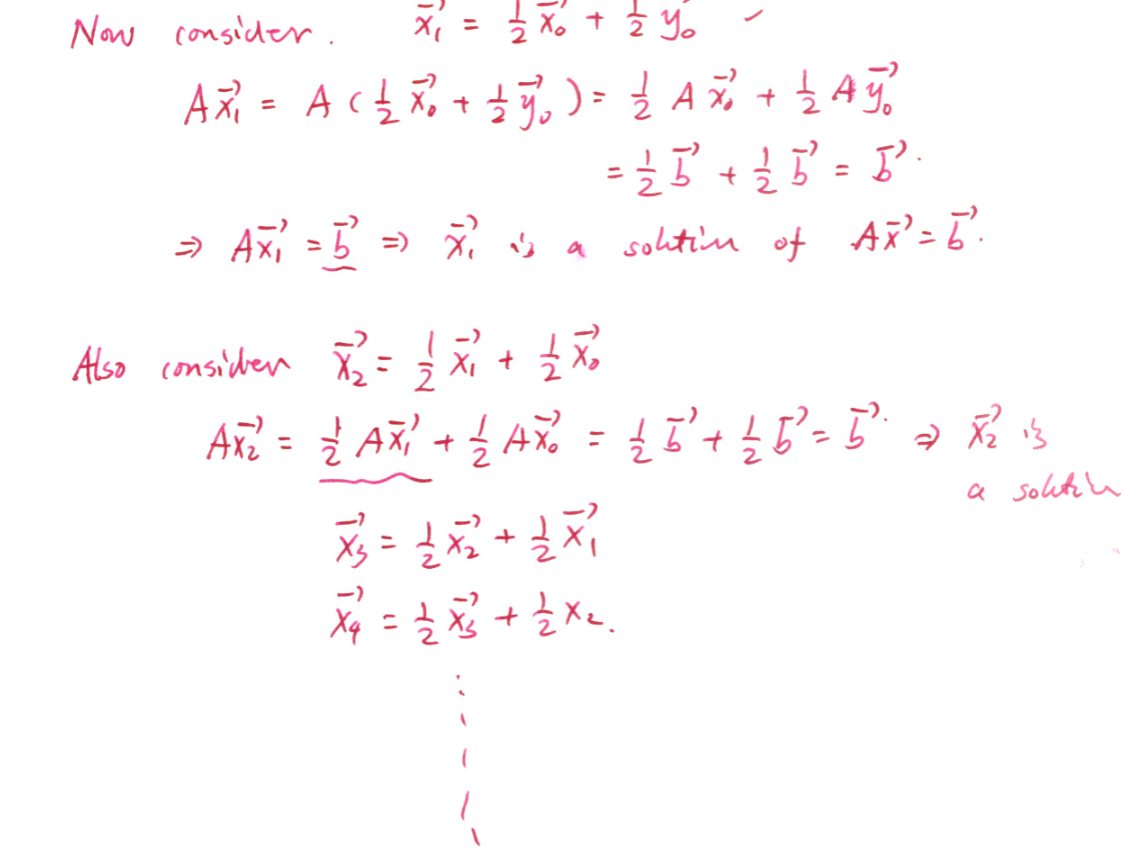 Now consider. x⃗₁ = ½ x⃗₀ + ½ y⃗₀ ✓
Ax⃗₁ = A(½ x⃗₀ + ½ y⃗₀) = ½ A x⃗₀ + ½ A y⃗₀
= ½ b⃗ + ½ b⃗ = b⃗.
⇒ Ax⃗₁ = b⃗ ⇒ x⃗₁ is a solution of Ax⃗ = b⃗.
Also consider x⃗₂ = ½ x⃗₁ + ½ x⃗₀
Ax⃗₂ = ½ Ax⃗₁ + ½ Ax⃗₀ = ½ b⃗ + ½ b⃗ = b⃗. ⇒ x⃗₂ is
a solution
x⃗₃ = ½ x⃗₂ + ½ x⃗₁
x⃗₄ = ½ x⃗₃ + ½ x₂.